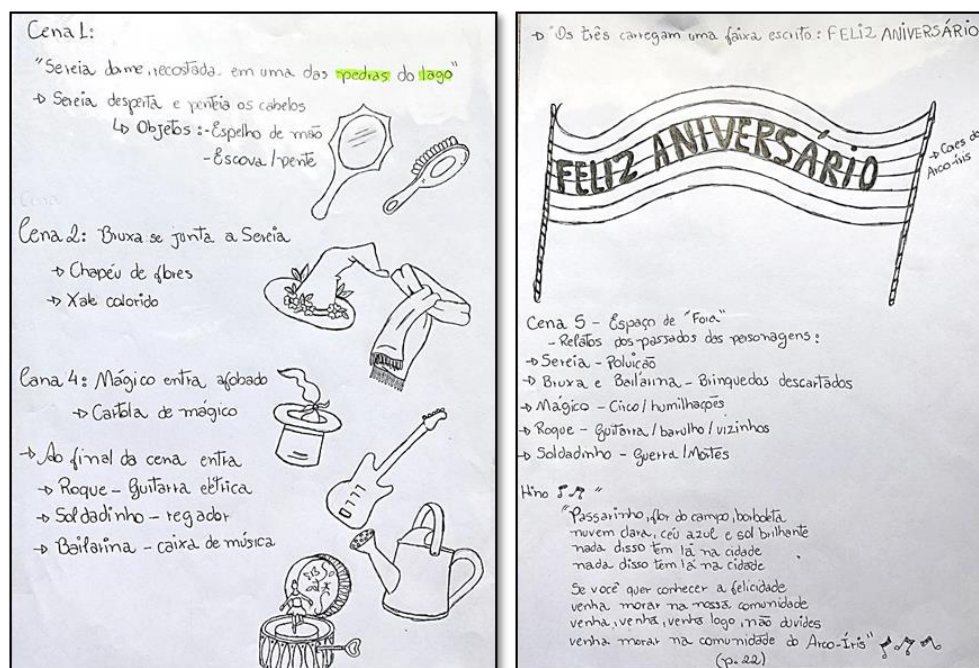 Cena 1:
"Sereia dorme, recostada em uma das pedras do lago"
→ Sereia desperta e penteia os cabelos
↳ Objetos: - Espelho de mão
- Escova / pente
Cena
Cena 2: Bruxa se junta a Sereia
→ Chapéu de flores
→ Xale colorido
Cena 4: Mágico entra afobado
→ Cartola de mágico
→ Ao final da cena entra
→ Roque - Guitarra elétrica
→ Soldadinho - regador
→ Bailarina - caixa de música
→ "Os três carregam uma faixa escrito: FELIZ ANIVERSÁRIO
FELIZ ANIVERSÁRIO
→ Cores do
Arco-íris
Cena 5 - Espaço de "Fora"
- Relatos dos passados dos personagens:
→ Sereia - Poluição
→ Bruxa e Bailarina - Brinquedos descartados
→ Mágico - Circo / humilhações
→ Roque - Guitarra / barulho / vizinhos
→ Soldadinho - Guerra / Mortes
Hino ♪♫ "
"Passarinho, flor do campo, borboleta
nuvem clara, céu azul e sol brilhante
nada disso tem lá na cidade
nada disso tem lá na cidade
Se você quer conhecer a felicidade
venha morar na nossa comunidade
venha, venha, venha logo, não duvides
venha morar na comunidade do Arco-Íris" ♪♫♪
(p. 22)